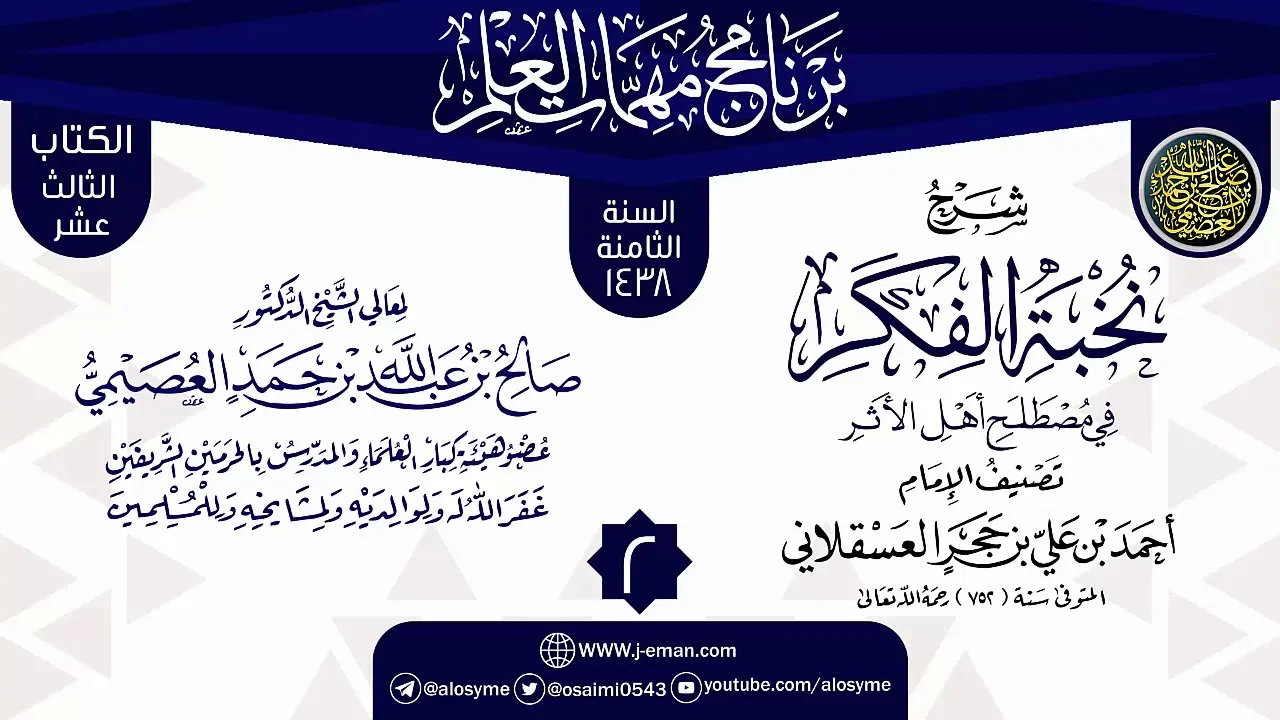 بَرْنَامَجُ مُهِمَّاتِ العِلْمِ
الكتاب
الثالث
عشر
السنة
الثامنة
١٤٣٨
شَرْحُ
نُخْبَةُ الفِكَرِ
فِي مُصْطَلَحِ أَهْلِ الأَثَرِ
تَصْنِيفُ الإِمَامِ
أَحْمَدَ بْنِ عَلِيِّ بْنِ حَجَرٍ العَسْقَلَانِي
المتوفى سَنة ( ٧٥٢ ) رحمهُ الله تعالى
لِمَعَالِي الشَّيْخِ الدُّكْتُورِ
صَالِحُ بْنُ عَبْدِ اللَّهِ بْنِ حَمَدٍ العُصَيْمِيُّ
عُضْوُ هَيْئَةِ كِبَارِ العُلَمَاءِ وَالمُدَرِّسُ بِالحَرَمَيْنِ الشَّرِيفَيْنِ
غَفَرَ اللَّهُ لَهُ وَلِوَالِدَيْهِ وَلِمَشَايِخِهِ وَلِلْمُسْلِمِينَ
صالح بن عبد الله بن حمد العصيمي
٢
WWW.j-eman.com
@alosyme @osaimi0543 youtube.com/alosyme